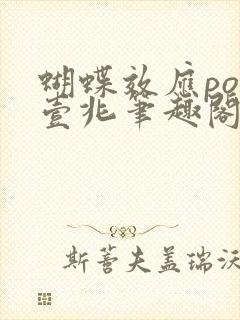 蝴蝶效应po
壹兆笔趣阁
斯蒈夫盖瑞沃